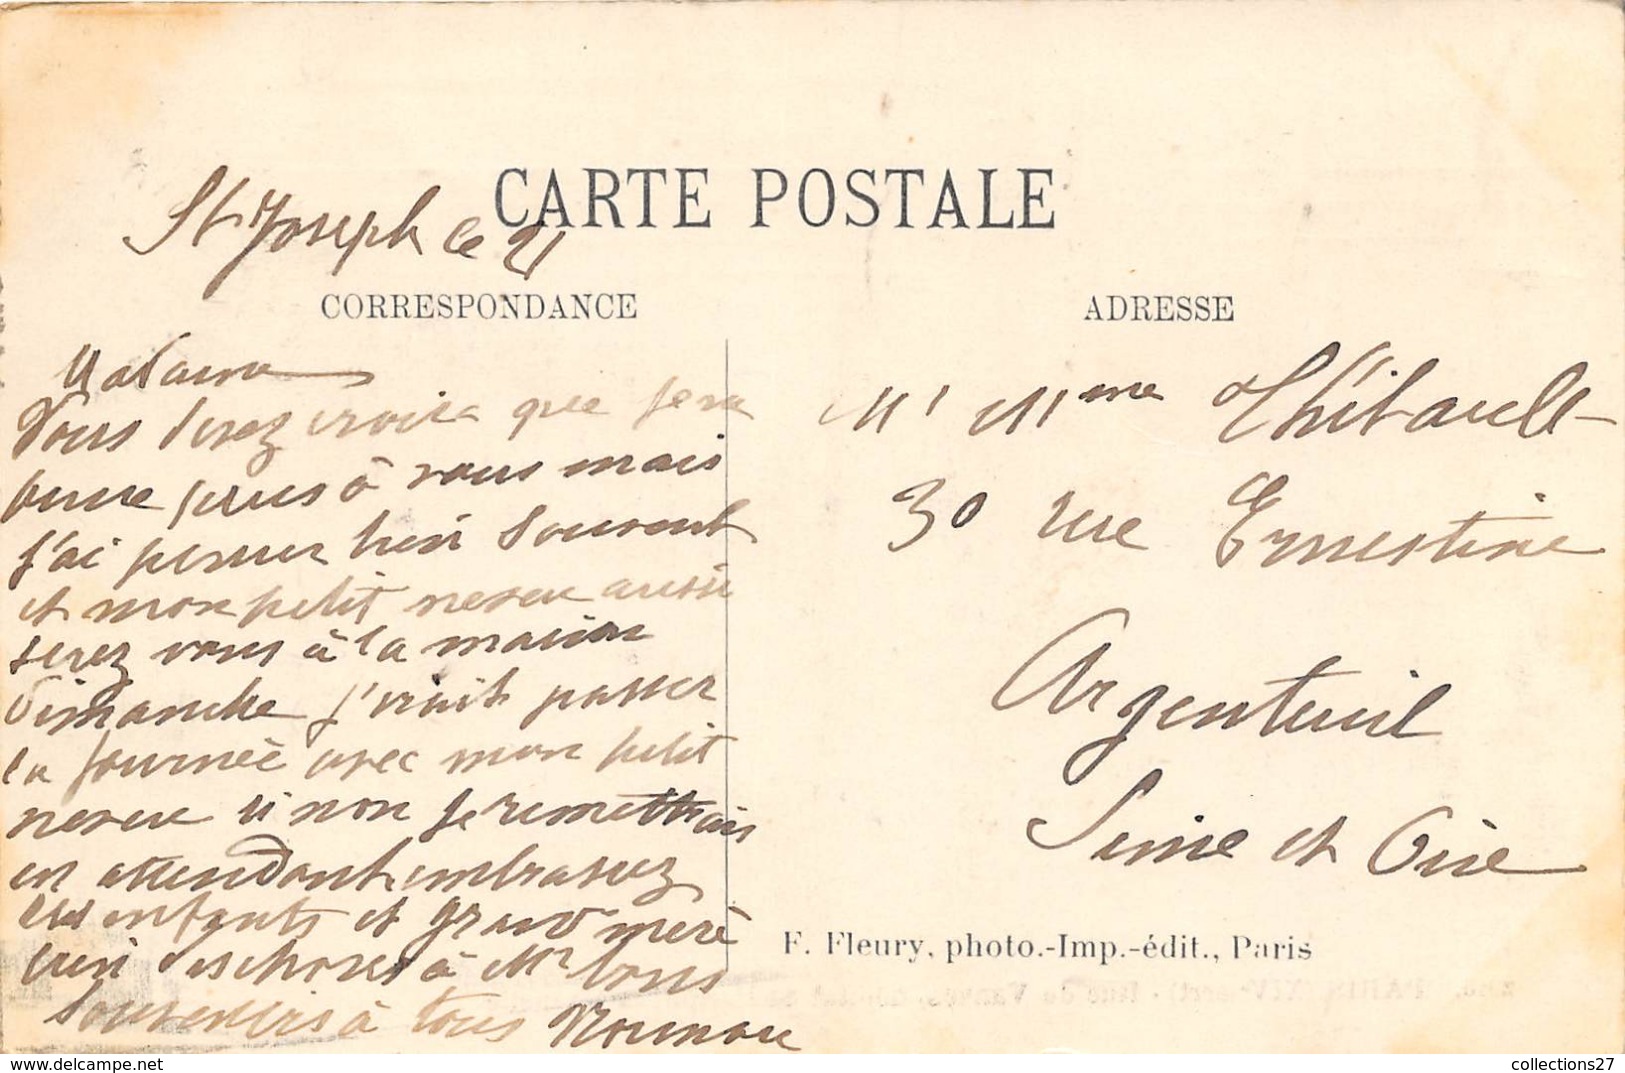 CARTE POSTALE
St Joseph le 21
CORRESPONDANCE
Madame
Vous devez croire que je ne
pense plus à vous mais
j'ai penser bien souvent
et mon petit neveu aussi
serez vous à la maison
Dimanche j'irait passer
la journée avec mon petit
neveu si non je remettrais
en attendant embrassez
les enfants et grand mère
bien des choses à Mr bons
souvenirs à tous
ADRESSE
Mr Mme Thibault
30 rue Ernestine
Argenteuil
Seine et Oise
F. Fleury, photo.-Imp.-édit., Paris
collections27